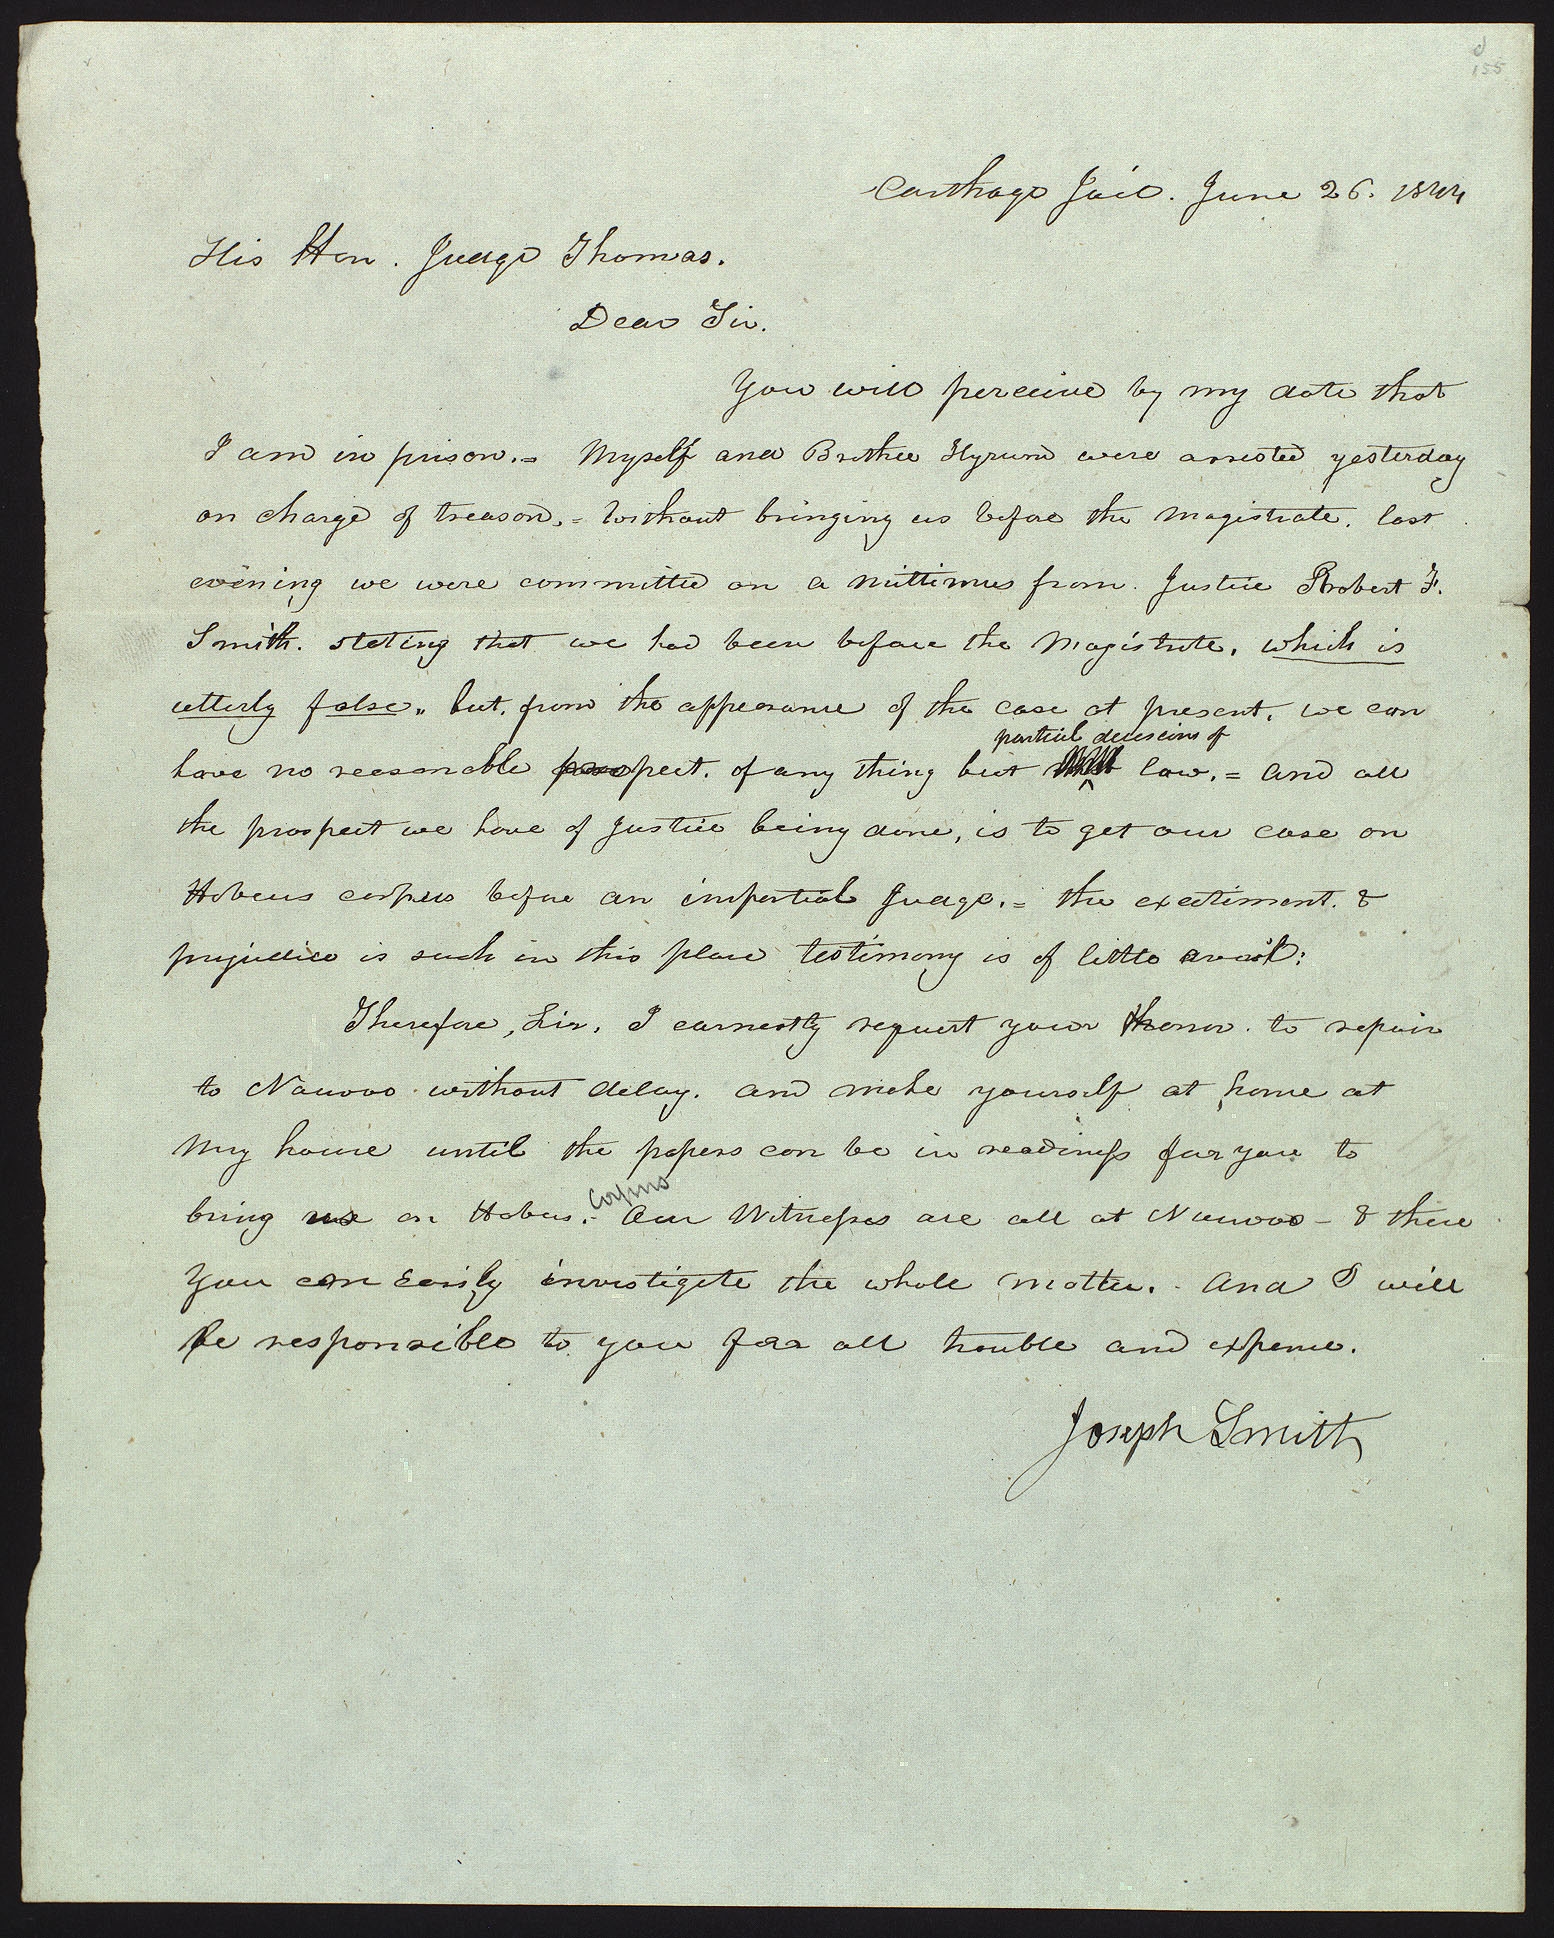 155
Carthage Jail. June 26. 1844
His Hon. Judge Thomas.
Dear Sir.
You will perceive by my date that
I am in prison.= Myself and Brother Hyrum were arrested yesterday
on charge of treason,= without bringing us before the magistrate. last
evening we were committed on a mittimus from Justice Robert F.
Smith. stating that we had been before the Magistrate, which is
utterly false.. but, from the appearance of the case at present, we can
partial decisions of
have no reasonable prospect. of any thing but law.= and all
the prospect we have of Justice being done, is to get our case on
Habeus corpus before an impartial Judge.= the excitiment. &
prejudice is such in this place testimony is of little avail:
Therefore, Sir, I earnestly request your honor. to repair
to Nauvoo without delay. and make yourself at home at
my house until the papers can be in readiness for you to
corpus
bring us on Habeus.- Our Witnesses are all at Nauvoo - & there
you can Easily investigate the whole matter.- And I will
be responsible to you for all trouble and expense.
Joseph Smith